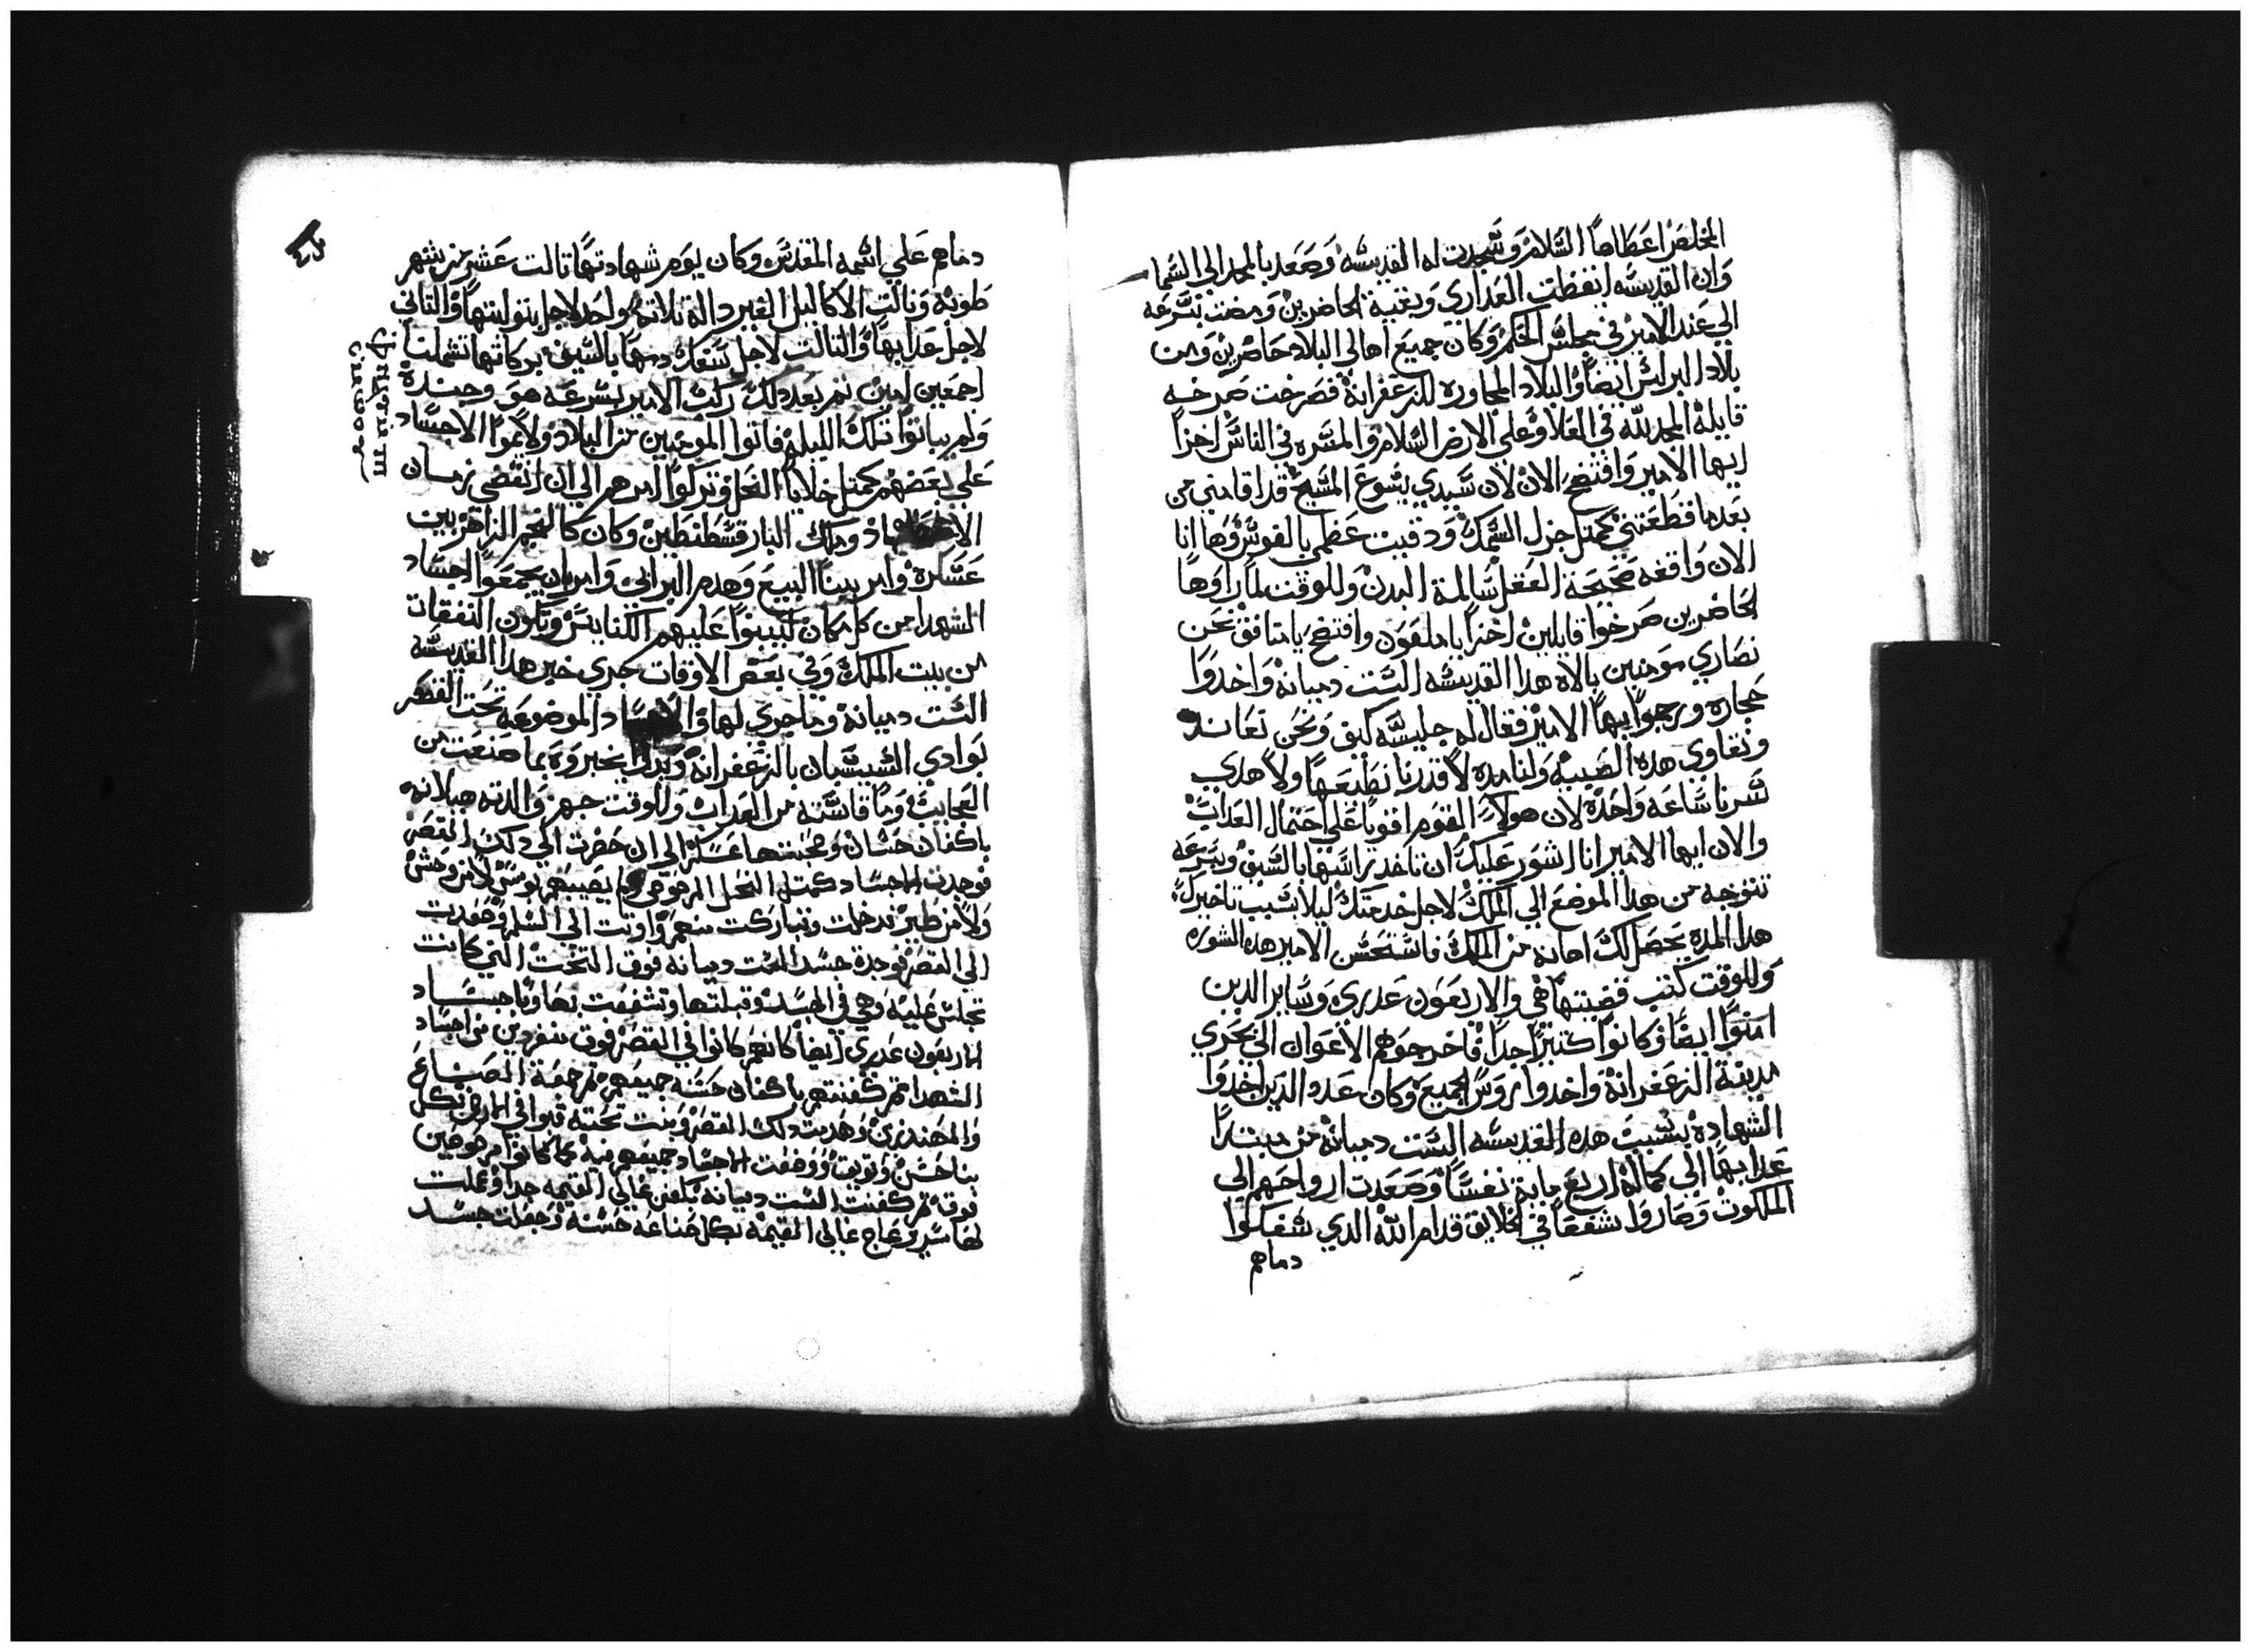 المخلص اعطاها السلام وسجدت له القديسه وصعد بالمجد الي السما
وان القديسه ايقظت العداري وبقية الحاضرين ومضت بسرعه
الي عند الامير في مجلس الحكم وكان جميع اهالي البلاد حاضرين ومن
بلاد البرلس ايضا والبلاد المجاوره للزعفرانة فصرخت صرخه
قايلة المجد لله في العلا وعلي الارض السلام والمسره في الناس اخزا
ايها الامير وافتضح الان لان سيدي يسوع المسيح قد اقامني من
بعد ما قطعتني كمتل جزل السمك ودقيت عظمي بالفوس وها انا
الان واقفه صحيحة العقل سالمة البدن وللوقت لما راوها
الحاضرين صرخوا قايلين اخزا يا ملعون وافتضح يا منافق نحن
نصاري مومنين بالاه هدا القديسه الست دميانة واخدوا
حجاره ورجموا بها الامير فقال له جليسه كيف ونحن نعاند
ونقاوي هده الصبيه ولنا مده لا قدرنا نطيعها ولا هدي
سرنا ساعه واحدة لان هولاء القوم اقويا علي احتمال العداب
والان ايها الامير انا اشور عليك ان تاخد راسها بالسيف وبسرعه
تتوجه من هدا الموضع الي الملك لاجل خدمتك ليلا بسبب تاخيرك
هدا المده يحصل لك اهانه من الملك فاستحسن الامير هده الشوره
وللوقت كتب قضيتها هي والاربعون عدري وساير الدين
امنوا ايضا وكانوا كتيرا جدا فاخرجوهم الاعوان الي بحري
مدينة الزعفرانة واخدوا روس الجميع وكان عدد الدين اخدوا
الشهادة بسبب هده القديسه الست دميانة من مبتدا
عدابها الي كماله اربع ماية نفسا وصعدت ارواحهم الي
الملكوت وصاروا شفعا في الخلايق قدام الله الدي سفكوا
دماهم
دماهم علي اسمه المقدس وكان يوم شهادتها تالت عشر من شهر
طوبه ونالت الاكاليل الغير داله تلاته واحد لاجل بتوليتها والتاني
لاجل عدابها والتالت لاجل سفك دمها بالسيف بركاتها تشملنا
اجمعين امين تم بعد دلك ركب الامير بسرعه هو وجنده
ولم يباتوا تلك الليلة فاتوا المومنين من البلاد ولاموا الاجساد
علي بعضهم كمتل خلايا النحل وتركوا امرهم الي ان انقضي زمان
الاضطهاد وملك البار قسطنطين وكان كالنجم الزاهر بين
عساكره وامر ببينا البيع وهدم البرابي وامر بان يجمعوا اجساد
الشهدا من كل مكان ليبنوا عليهم الكنايس وتكون النفقات
من بيت الملك وفي بعض الاوقات جري خبر هدا القديسه
الست دميانة وما جري لها والاجساد الموضوعه تحت القصر
بوادي السيسبان بالزعفرانة وبدوا يخبروه بما صنعت من
العجايب وما قاسته من العداب وللوقت جهز والدته هيلانه
باكفان حسان وصحبتها عسكر الي ان حضرت الي دلك القصر
فوجدت الاجساد كمتل النحل المرضوض ولم يصيبهم سوس لا من وحش
ولا من طير فدخلت وتباركت منهم واوتت الي السلم وصعدت
الي القصر فوجدة جسد الست دميانه فوق التخت التي كانت
تجلس عليه وهي في الجسد وقبلتها وتشفعت بها وباجساد
الاربعون عدري ايضا كانهم كانوا في القصر فوق منفردين من اجساد
الشهدا تم كفنتهم باكفان حسنه جميعهم تم جمعة الصناع
والمهندزين وهدمت دلك القصر وبنت تحته قبوا في الارض بكل
بنا حسن وتوتيق ووضعت الاجساد جميعهم فيه كما كانوا مرضوضين
فوقه تم كفنت الست دميانه بكفن غالي القيمه جدا وعملت
لها سرير عاج غالي القيمة بكل صناعه حسنه وجعلت جسد